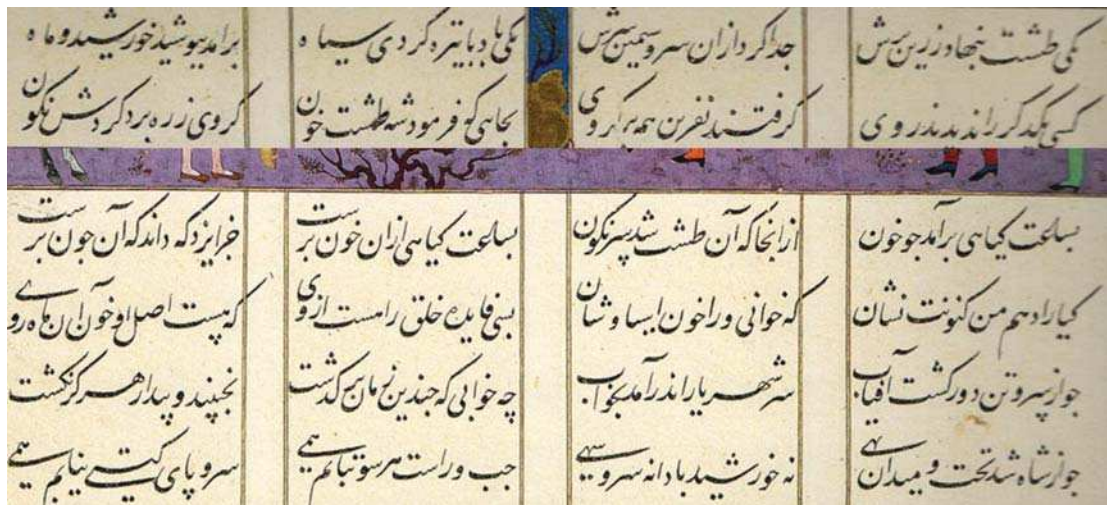 یکی طشت بنهاد زرین برش جدا کرد ازان سرو سیمین سرش یکی باد با تیره گردی سیاه برامد بپوشید خورشید و ماه
کسی یکدگر را ندیدند روی گرفتند نفرین همه بر گروی بجایی کو فرمود شه طشت خون گروی زره برد کردش نگون
بساعت گیاهی برآمد جو خون از انجا که آن طشت شد سرنگون بساعت گیاهی ازان خون برست جز ایزد که داند که آن جون برست
گیا را دهم من کنونت نشان که خوانی ورا خون ایسا وشان بسی فایده خلق را هست ازوی که هست اصل او خون آن ماه روی
جو از سرو تن دور گشت آفتاب سر شهریار اندر آمد بخواب چه خوابی که جندین زمان بر گذشت نجنبید و بیدار هرگز نگشت
جو از شاه شد تخت و میدان تهی نه خورشید بادا نه سرو سهی جب و راست هر سو بتابم همی سر و پای گیتی نیابم همی